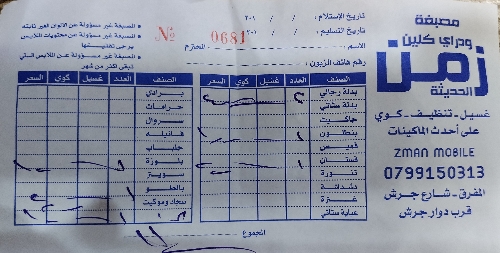 مصبغة
ودراي كلين
زمن
الحديثة
غسيل - تنظيف - كوي
على أحدث الماكينات
ZMAN MOBILE
0799150313
المفرق - شارع جرش
قرب دوار جرش
تاريخ الإستلام : / / ٢٠١
تاريخ التسليم : / / ٢٠١
№ 0681
الاسم : المحترم
رقم هاتف الزبون :
المصبغة غير مسؤولة عن الألوان الغير ثابتة
المصبغة غير مسؤولة عن محتويات الملابس
يرجى تفقدها
المصبغة غير مسؤولة عن الملابس التي
تبقى أكثر من شهر
الصنف العدد غسيل كوي السعر
بدلة رجالي ٢
بدلة ستاتي
جاكيت
بنطلون ١
قميص
فستان ١
تنورة
دشداشة
عباية ستاتي
الصنف العدد غسيل كوي السعر
برادي
حرامات
سروال
فانيله
جلباب
بلوزة ١
سويتر
بالطو ١
سجاد وموكيت ١
المجموع